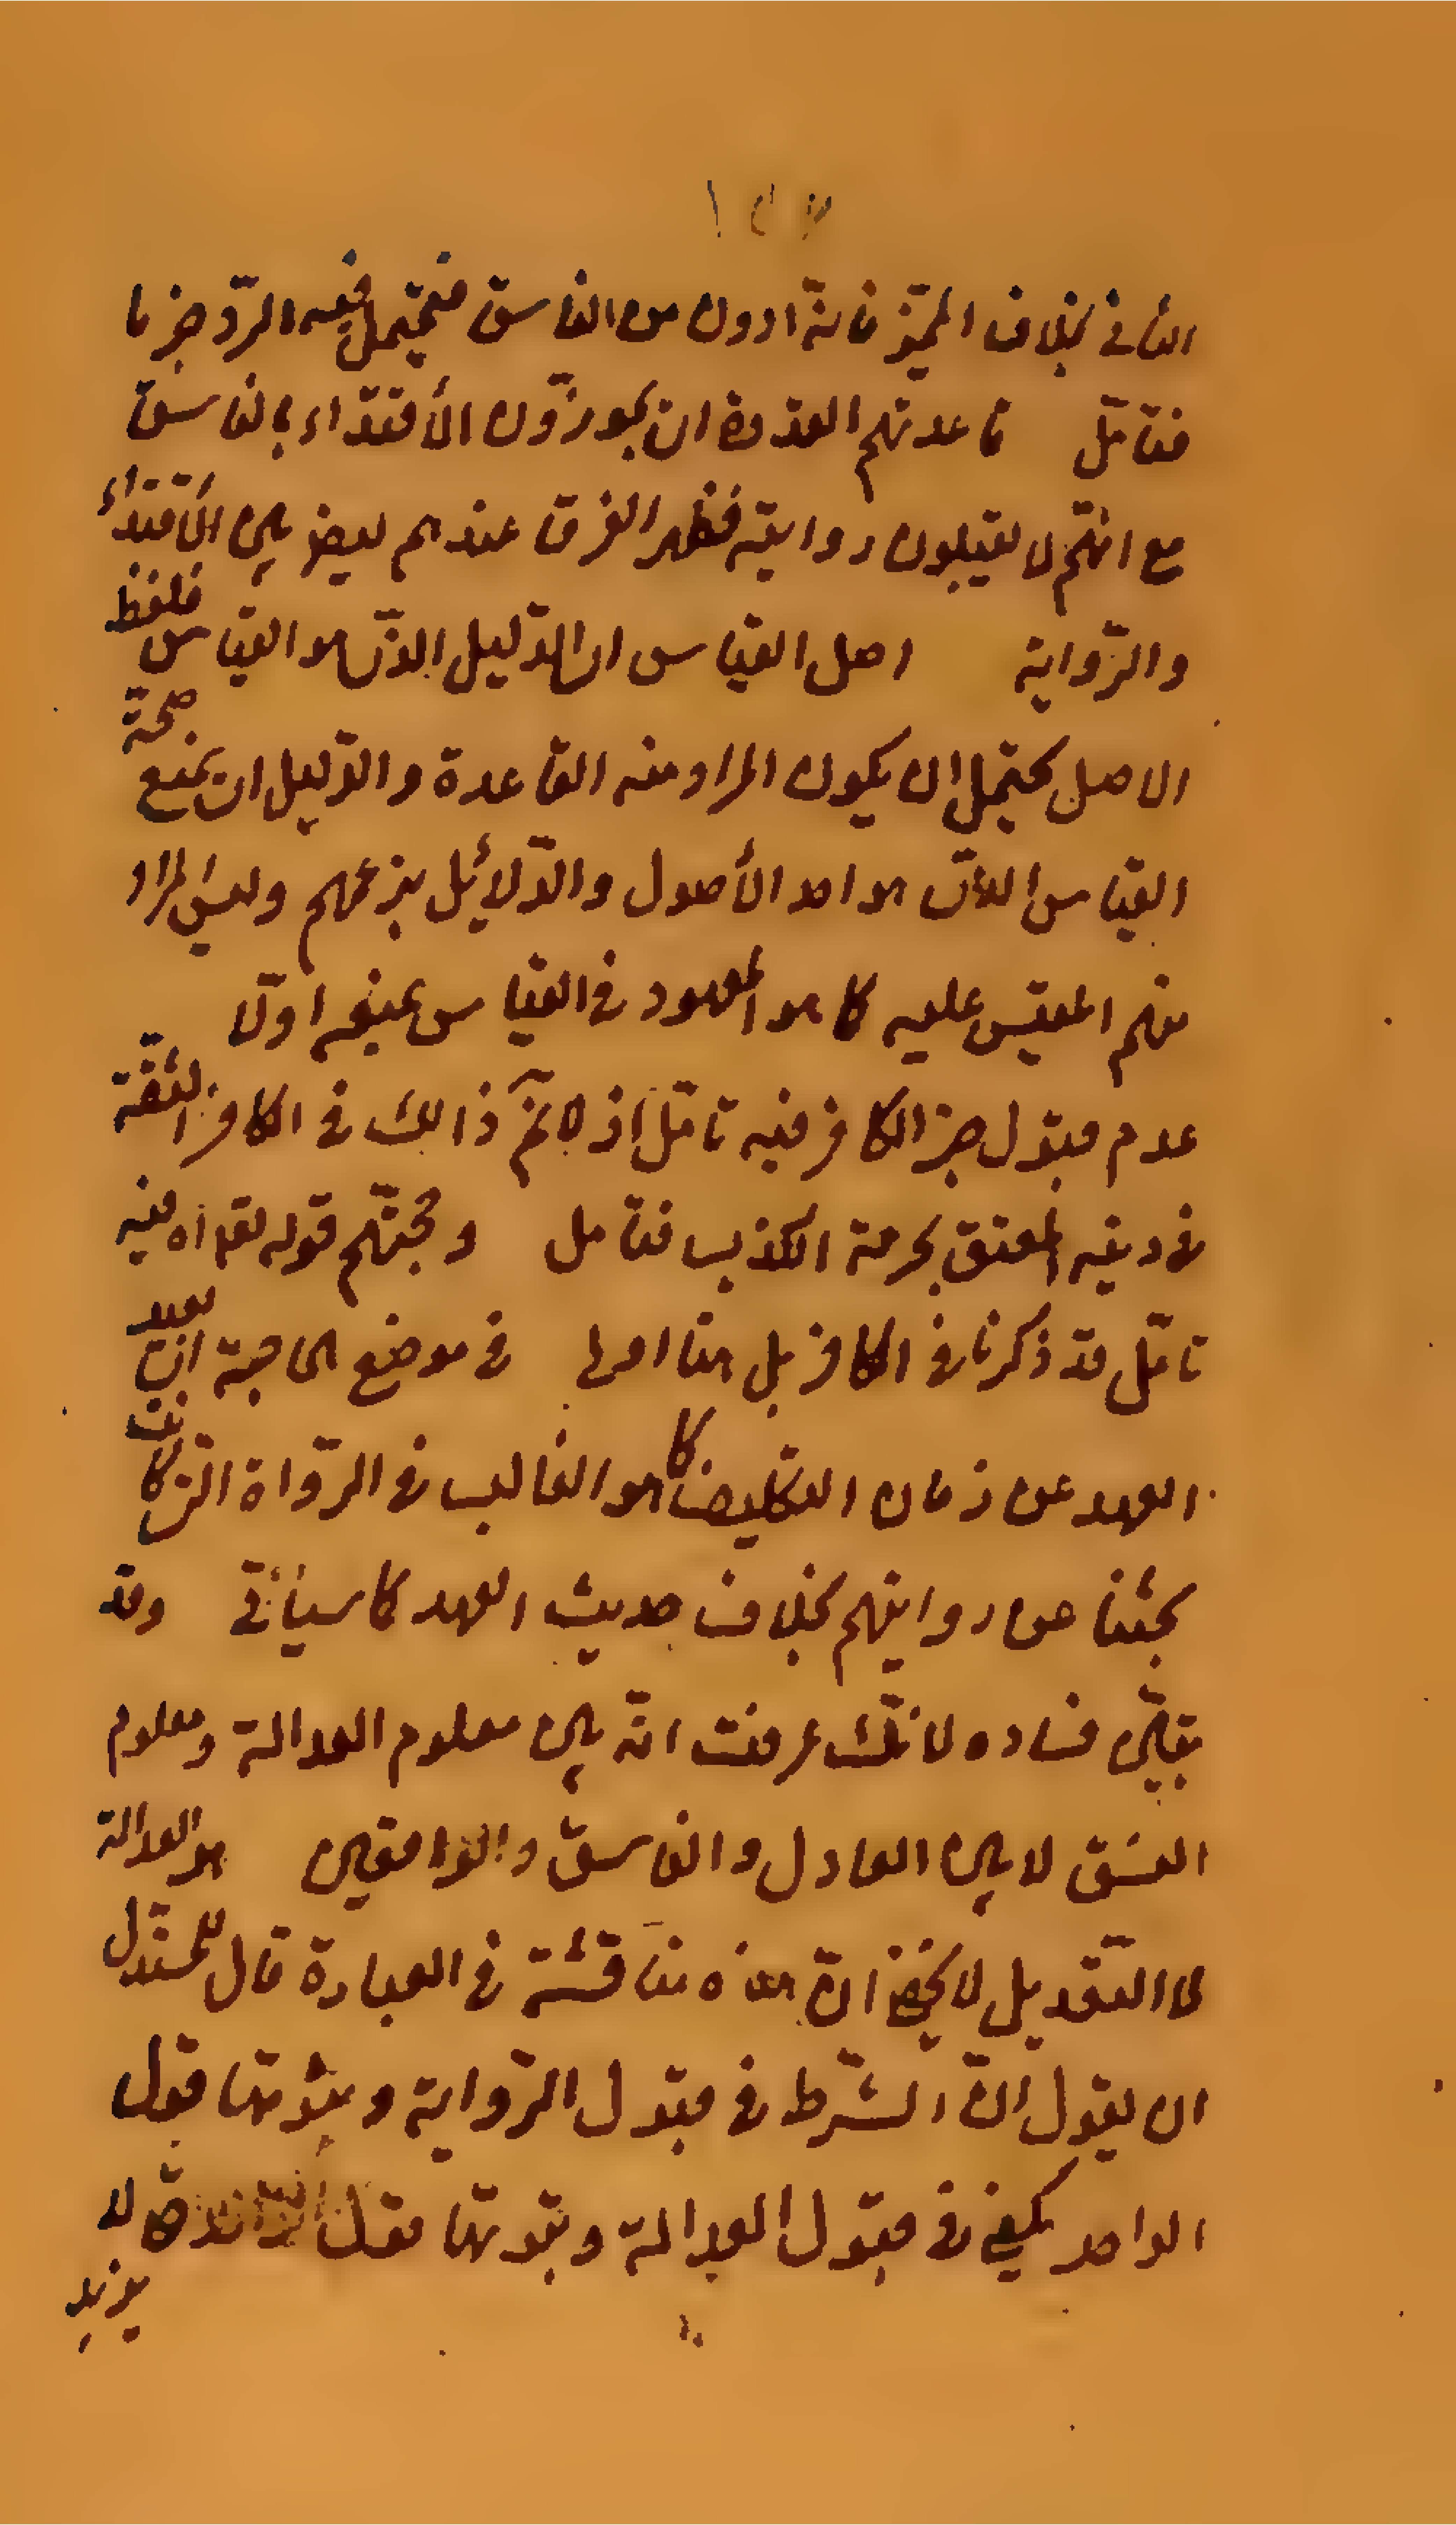 الثانى بخلاف المميّز فانه ادون من الفاسق فيحتمل فيه الردّ جزما
فتأمّل قاعدتهم العقدوة ان يجوزون الأقتداء بالفاسق
مع انهم لا يقبلون روايته فظهر الفرق عندهم ايضا بين الأقتداء
والرّواية اصل القياس ان الدّليل الذى هو القياس فلفظ
الاصل يحتمل ان يكون المراد منه القاعدة والدّليل ان يمنع صحة
القياس الذى هو احد الأصول والدّلائل بزعمهم وليس المراد
منهم المقيس عليه كما هو المعهود فى القياس عينه اولا
عدم قبول خبر الكافر فيه تامّل اذ لا يتمّ ذالك فى الكافر الثقة
فى دينه المعتق بحرمة الكذب فتأمل وحجّتهم قوله تعم اه فيه
تامّل قد ذكرنا فى الكافر بل هنا اولى فى موضع الحاجة ان بعيد
العهد عن زمان التكليف كما هو الغالب فى الرّواة التى كانت
بحثنا عن روايتهم بخلاف حديث العهد كما سيأتى وقد
تبيّن فساده لانّك عرفت انّه بين معلوم العدالة ومعلوم
الفسق لا بين العادل والفاسق والواقعين هو العدالة
لا التعديل لا يخفى انّ هذه مناقشة فى العبارة قال للمستدل
ان يقول انّ الشرط فى قبول الرّواية وثبوتها قول
الواحد يكفى فى قبول العدالة وثبوتها لا
يزيد